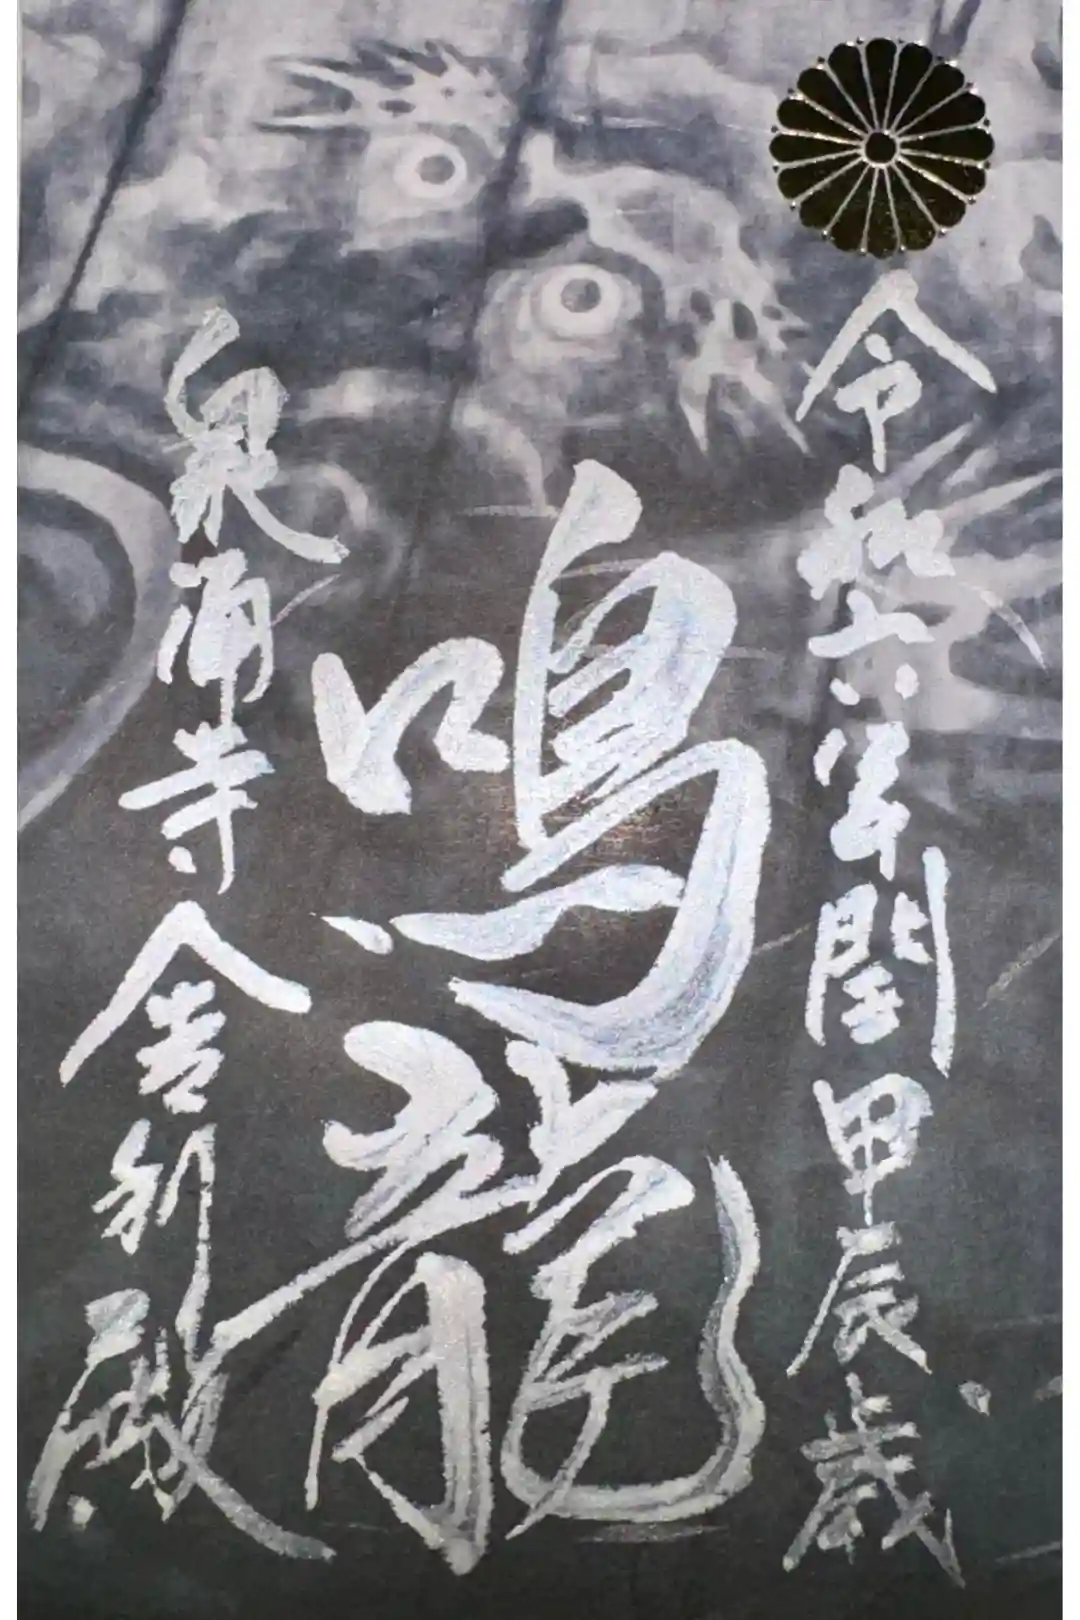 令和六年閏甲辰歳
鳴龍
泉涌寺舎利殿